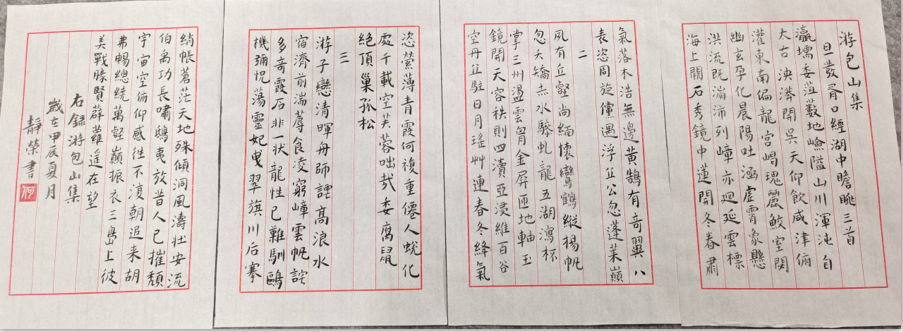 游包山集
旦發胥口經湖中瞻眺三首
瀛壖委沮藪地嶮隘山川渾沌自
太古泱漭開吳天仰飲咸津俯
灌東南偏龍宮嵑瑰麗鮫室閟
幽玄孕化晨陽吐涵虛霄象懸
洪流既湍沛列嶂亦迴延雲標
海上闕石秀鏡中蓮閱冬春肅
氣落木浩無邊黃鵠有奇翼八
表恣周旋僮遇浮丘公忽蓬萊巔
二
夙有丘壑尚緬懷鸞鶴縱揚帆
忽夭矯赤水驂虬龍五湖瀉杯
掌三州盪雲胷金屏匝地軸玉
鏡開天容秩則四瀆亞浸維百谷
空丹丘駐日月瑤艸連春冬絳氣
恣縈薄青霞何複重僊人蛻化
處千載空芙蓉咄哉委腐鼠
絕頂巢孤松
三
游子戀清暉舟師謹高浪水
宿濟前湍蓐食淩窮嶂雲帆詫
多奇霞石非一狀龍性已難馴鷗
機彌悅蕩靈妃曳翠旗川后搴
綃帳蒼茫天地殊傾洞風濤壯安流
伯禹功長嘯鴟夷放昔人已摧頹
宇宙空俯仰感往不復朝追來胡
弗暢總統萬壑巔振衣三島上彼
美戰勝賢群難進在望
右錄游包山集
歲在甲辰夏月
靜榮書